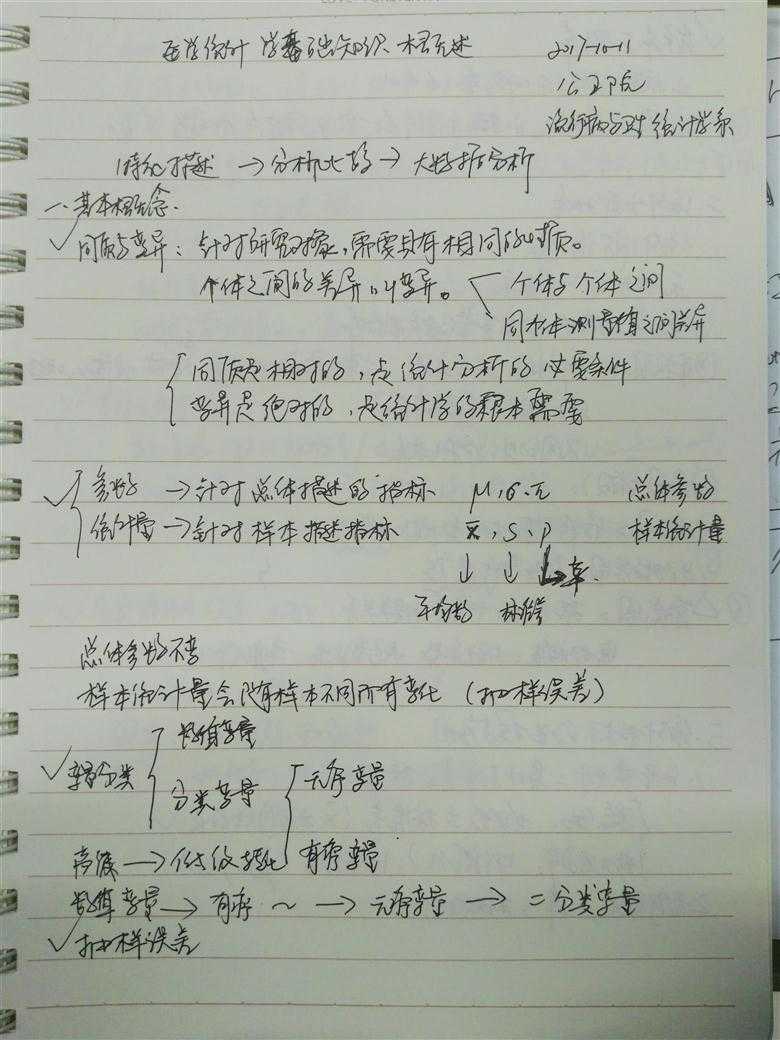 医学统计学基础知识概述 2017-10-11
公卫院
流行病与卫生统计学系
特征描述 → 分析比较 → 大数据分析
一、基本概念.
✓同质与变异：针对研究对象，需要具有相同的性质。
个体之间的差异叫变异。 个体与个体之间
同个体测量值之间差异
同质是相对的，是统计分析的必要条件
变异是绝对的，是统计学的根本需要
✓参数 → 针对总体描述的指标 μ,σ,π 总体参数
统计量 → 针对样本描述指标 x̄,S,p 样本统计量
↓ ↓ ↳率.
平均数 标准差
总体参数不变
样本统计量会随样本不同而有变化（抽样误差）
数值变量
✓变量分类
分类变量 无序变量
高级 → 低级转化 有序变量
数值变量 → 有序 ~ → 无序变量 → 二分类变量
✓抽样误差